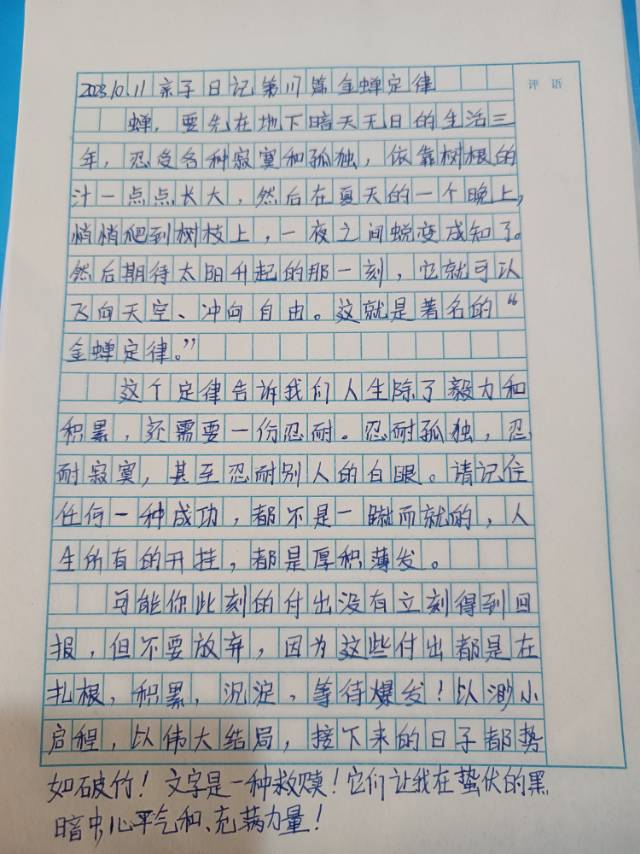 2023.10.11 亲子日记第117篇金蝉定律
评语
蝉，要先在地下暗天无日的生活三
年，忍受各种寂寞和孤独，依靠树根的
汁一点点长大，然后在夏天的一个晚上，
悄悄爬到树枝上，一夜之间蜕变成知了。
然后期待太阳升起的那一刻，它就可以
飞向天空、冲向自由。这就是著名的“
金蝉定律。”
这个定律告诉我们人生除了毅力和
积累，还需要一份忍耐。忍耐孤独，忍
耐寂寞，甚至忍耐别人的白眼。请记住
任何一种成功，都不是一蹴而就的，人
生所有的开挂，都是厚积薄发。
可能你此刻的付出没有立刻得到回
报，但不要放弃，因为这些付出都是在
扎根，积累，沉淀，等待爆发！以渺小
启程，以伟大结局，接下来的日子都势
如破竹！文字是一种救赎！它们让我在蛰伏的黑
暗中心平气和、充满力量！